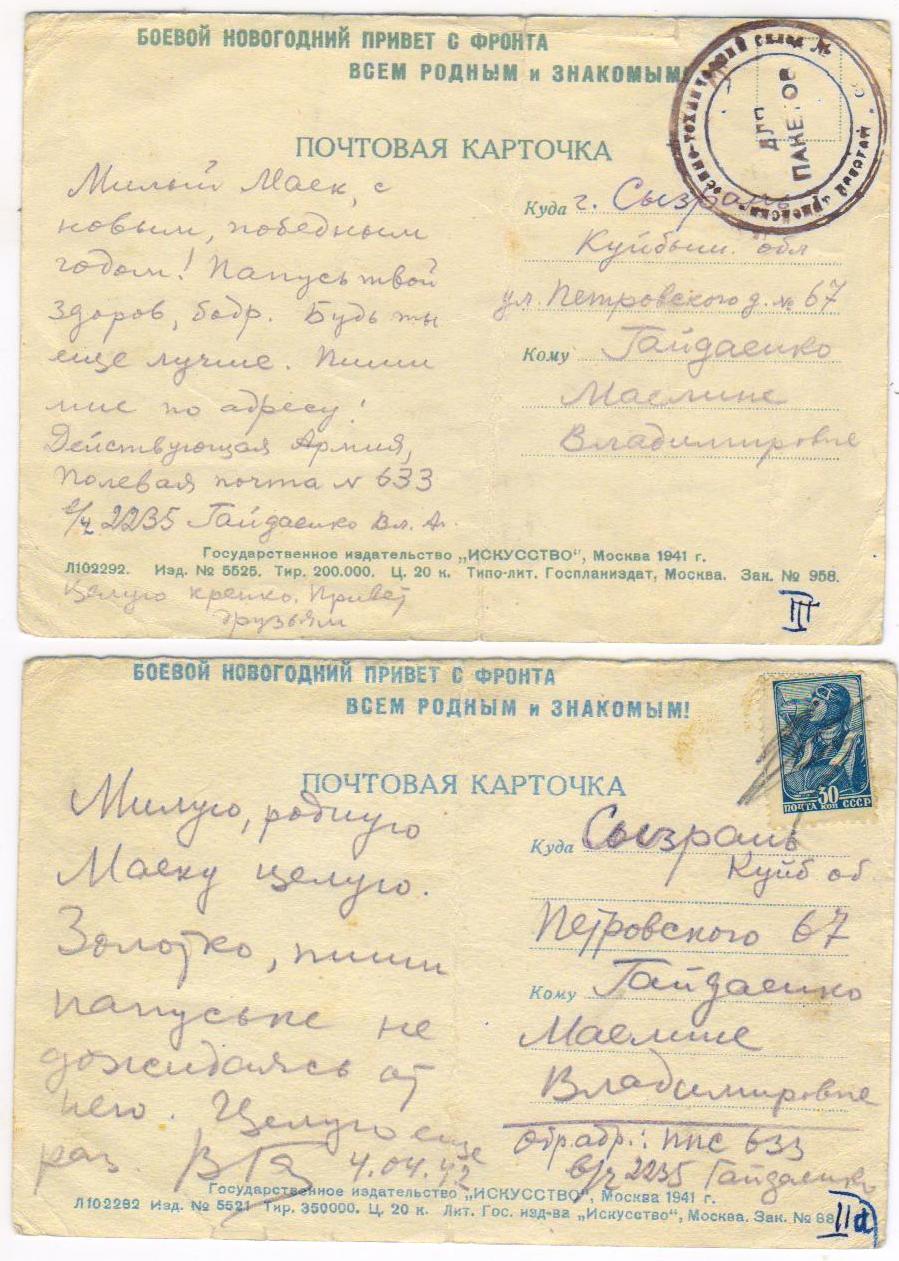 БОЕВОЙ НОВОГОДНИЙ ПРИВЕТ С ФРОНТА
ВСЕМ РОДНЫМ и ЗНАКОМЫМ!
ПОЧТОВАЯ КАРТОЧКА
ДЛЯ
ПАКЕТОВ
Милый Маек, с
новым, победным
годом! Папусь твой
здоров, бодр. Будь ты
еще лучше. Пиши
мне по адресу!
Действующая Армия,
Полевая почта № 633
в/ч 2235 Гайдаенко Вл. А.
Куда г. Сызрань
Куйбыш. обл
ул. Петровского д. № 67
Кому Гайдаенко
Маелине
Владимировне
Государственное издательство „ИСКУССТВО“, Москва 1941 г.
Л102292. Изд. № 5525. Тир. 200.000. Ц. 20 к. Типо-лит. Госпланиздат, Москва. Зак. № 958.
Целую крепко. Привет
друзьям
III
БОЕВОЙ НОВОГОДНИЙ ПРИВЕТ С ФРОНТА
ВСЕМ РОДНЫМ и ЗНАКОМЫМ!
30
ПОЧТА КОП СССР
ПОЧТОВАЯ КАРТОЧКА
Милую, родную
Маеку целую.
Золотко, пиши
папуське не
дожидаясь от
него. Целую еще
раз. 4.04.42
Куда Сызрань
Куйб об.
Петровского 67
Кому Гайдаенко
Маелине
Владимировне
Обр. адр.: ППС 633
в/ч 2235 Гайдаенко
Государственное издательство „ИСКУССТВО“, Москва 1941 г.
Л102292 Изд. № 5521 Тир. 350000. Ц. 20 к. Лит. Гос. изд-ва „Искусство“, Москва. Зак. № 88
IId